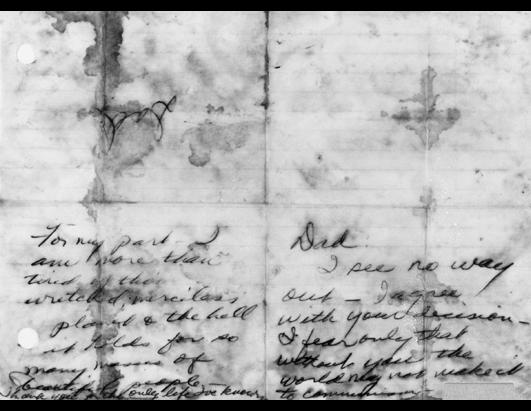 For my part - I
am more than
tired of this
wretched, merciless
planet & the hell
it holds for so
many masses of
beautiful people
thank you for the only life I've known
Dad.
I see no way
out - I agree
with your decision -
I fear only that
without you the
world may not make it
to communism